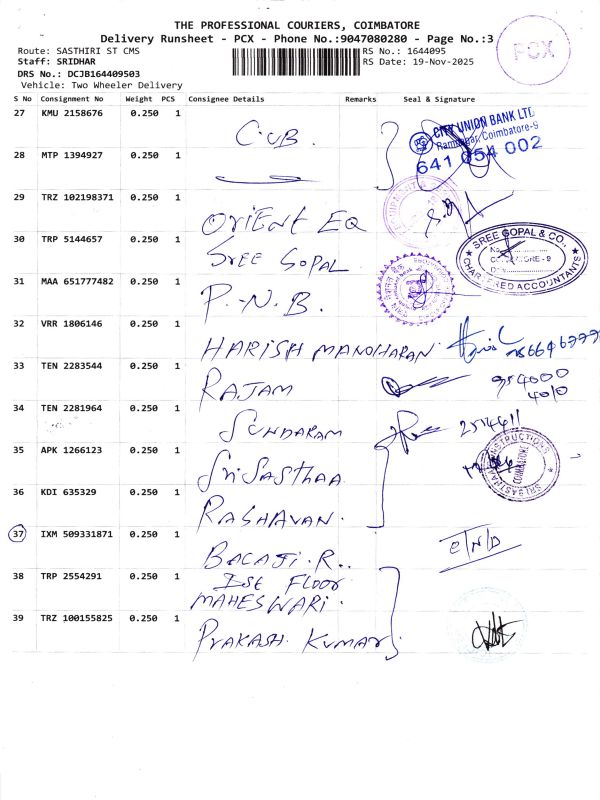 THE PROFESSIONAL COURIERS, COIMBATORE
Delivery Runsheet - PCX - Phone No.:9047080280 - Page No.:3
PCX
Route: SASTHIRI ST CMS
RS No.: 1644095
Staff: SRIDHAR
RS Date: 19-Nov-2025
DRS No.: DCJB164409503
Vehicle: Two Wheeler Delivery
S No Consignment No Weight PCS Consignee Details Remarks Seal & Signature
27 KMU 2158676 0.250 1 C.U.B.
CITY UNION BANK LTD
Ramnagar, Coimbatore-9
641 054 002
28 MTP 1394927 0.250 1
29 TRZ 102198371 0.250 1 ORIENT EQ
30 TRP 5144657 0.250 1 SREE GOPAL
SREE GOPAL & CO.,
CHARTERED ACCOUNTANTS
31 MAA 651777482 0.250 1 P.N.B.
32 VRR 1806146 0.250 1 HARISH MANOHARAN
33 TEN 2283544 0.250 1 RAJAM
954000
4010
34 TEN 2281964 0.250 1 SUNDARAM
35 APK 1266123 0.250 1 Sri SASTHAA
SRI SASTHAA CONSTRUCTIONS
COIMBATORE
36 KDI 635329 0.250 1 RAGHAVAN.
37 IXM 509331871 0.250 1 BALAJI.R..
38 TRP 2554291 0.250 1 Ist FLOOR
MAHESWARI.
39 TRZ 100155825 0.250 1 PRAKASH KUMAR